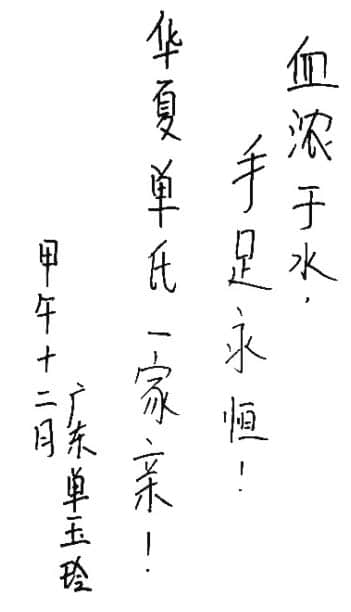 血浓于水，
手足永恒！
华夏单氏一家亲！
广东单玉玲
甲午十二月